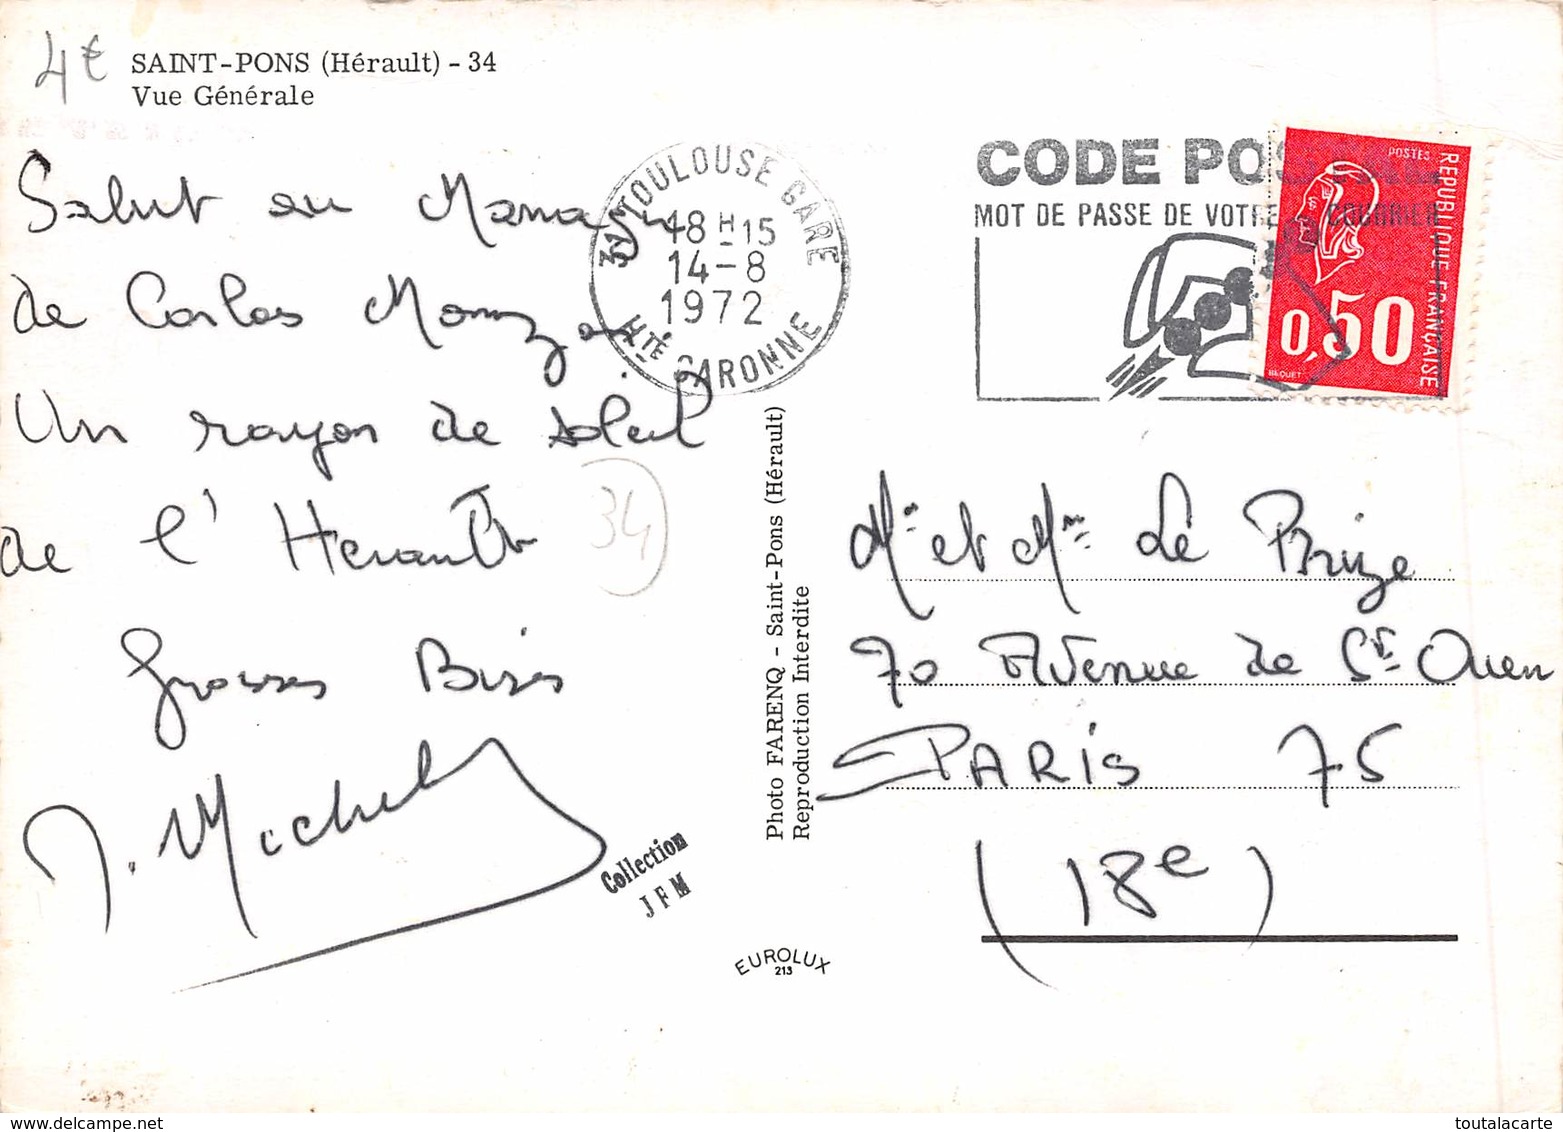 4€
SAINT-PONS (Hérault) - 34
Vue Générale
Salut au Manager
de Carlos Monzon
Un rayon de soleil
de l'Herault
34
Grosses Bises
J. Michel
Collection
J F M
31 TOULOUSE GARE
18 H 15
14-8
1972
HTE GARONNE
CODE POSTAL
MOT DE PASSE DE VOTRE COURRIER
POSTES
REPUBLIQUE FRANÇAISE
0,50
BEQUET
Photo FARENQ - Saint-Pons (Hérault)
Reproduction Interdite
EUROLUX
213
Mr et Mme Le Brize
70 Avenue de St Ouen
PARIS 75
(18e)
toutalacarte